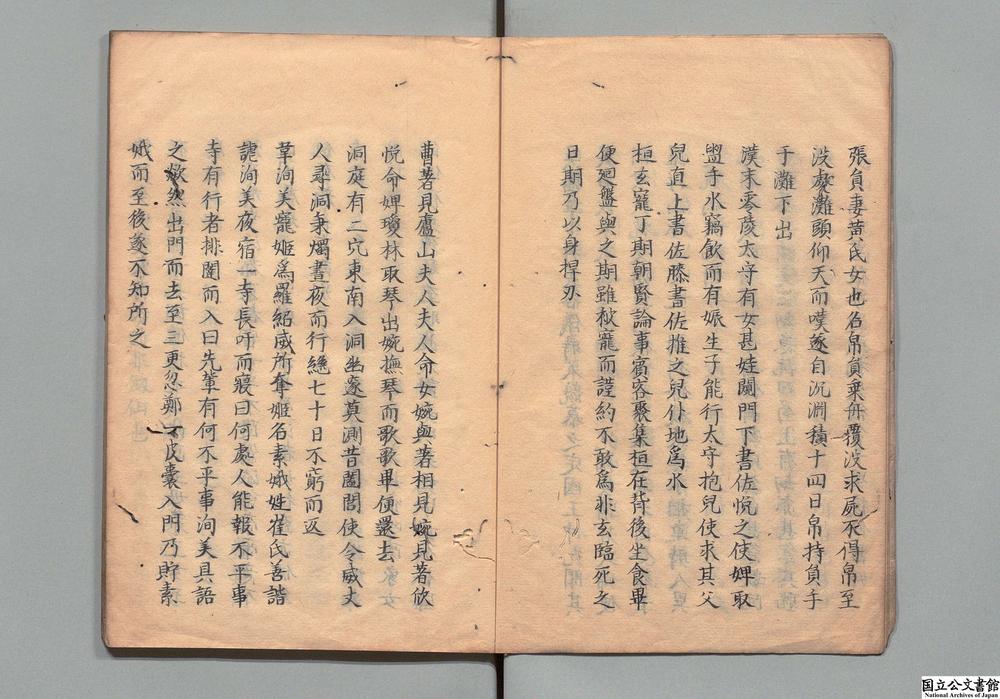 張負妻黄氏女也名帛負乗舟覆没求屍不得帛至
没處灘頭仰天而嘆遂自沉淵積十四日帛持負手
于灘下出
漢末零陵太守有女甚娃闚門下書佐悦之使婢取
盥手水竊飲而有娠生子能行太守抱兒使求其父
兒直上書佐膝書佐推之兒仆地爲水
桓玄寵丁期朝賢論事賓客聚集桓在背後坐食畢
便廻盤與之期雖被寵而謹約不敢爲非玄臨死之
日期乃以身捍刃
曹著見廬山夫人夫人命女婉與著相見婉見著欣
悦命婢瓊林取琴出婉撫琴而歌歌畢便還去
洞庭有二穴東南入洞幽邃莫測昔闔閭使令威丈
人尋洞秉燭晝夜而行繼七十日不窮而返
韋洵美寵姬爲羅紹威所奪姬名素娥姓崔氏善諧
謔洵美夜宿一寺長吁而寢曰何處人能報不平事
寺有行者排闥而入曰先輩有何不平事洵美具語
之欻然出門而去至三更忽擲一皮囊入門乃貯素
娥而至後遂不知所之
国立公文書館
National Archives of Japan